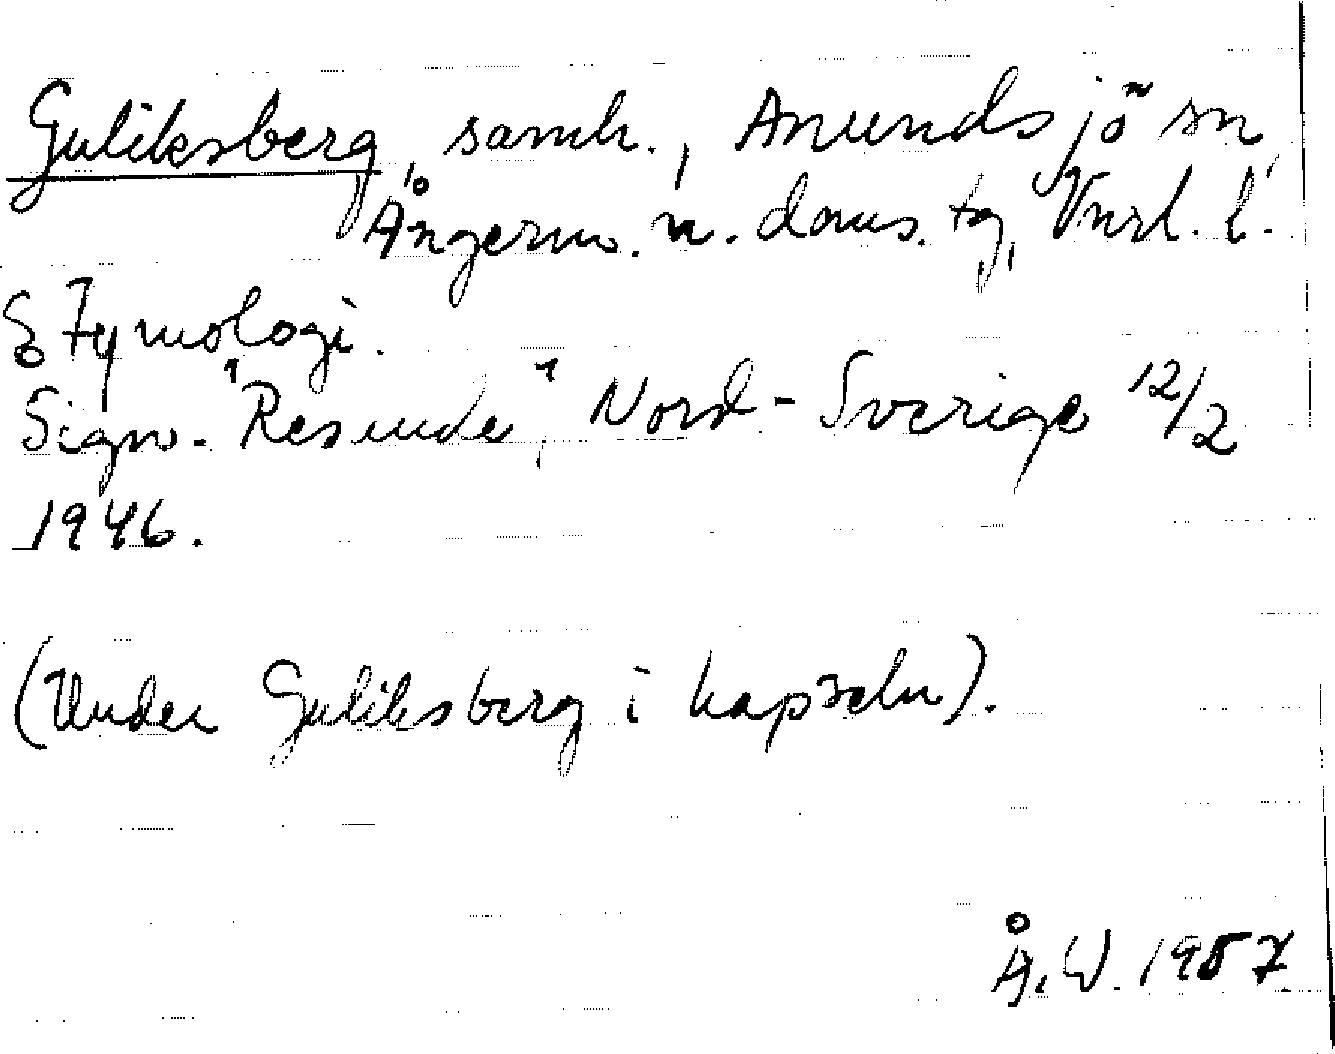 Guliksberg, samh., Anundsjö sn,
Ångerm. n. doms. tg, Vnrl. l.
Etymologi.
Sign. "Resande", Nord-Sverige 12/2
1946.
(Under Guliksberg i kapseln).
Å. W. 1957